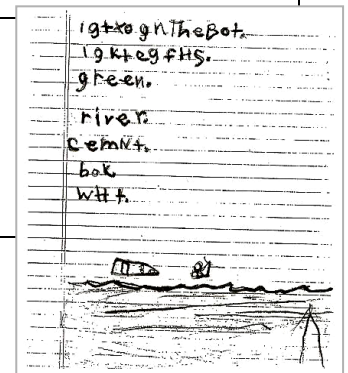 igtxognTheBot.
igktegfHS.
green.
river.
cemNt.
bok
WHt.